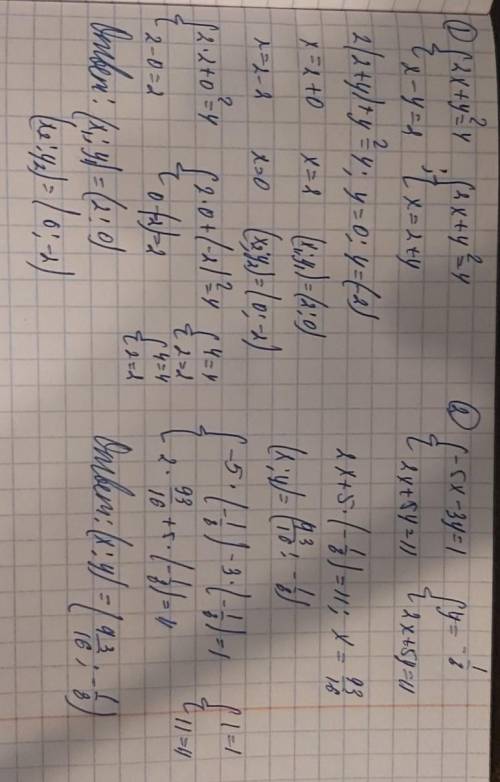 ① { 2x+y²=4 ; { 2x+y²=4
{ x-y=2 { x=2+y
2(2+y)+y²=4; y=0; y=(-2)
x=2+0 x=2 (x₁;y₁)=(2;0)
x=2-2 x=0 (x₂;y₂)=(0;-2)
{ 2·2+0²=4 { 2·0+(-2)²=4 { 4=4
{ 2-0=2 { 0-(-2)=2 { 2=2
{ 4=4
{ 2=2
Ответ: (x₁;y₁)=(2;0)
(x₂;y₂)=(0;-2)
② { -5x-3y=1 { y=-1/8
{ 2x+5y=11 { 2x+5y=11
2x+5·(-1/8)=11; x=93/16
(x;y)=(93/16; -1/8)
{ -5·(-1/8)-3·(-1/8)=1 { 1=1
{ 2·93/16+5·(-1/8)=11 { 11=11
Ответ: (x;y)=(93/16; -1/8)